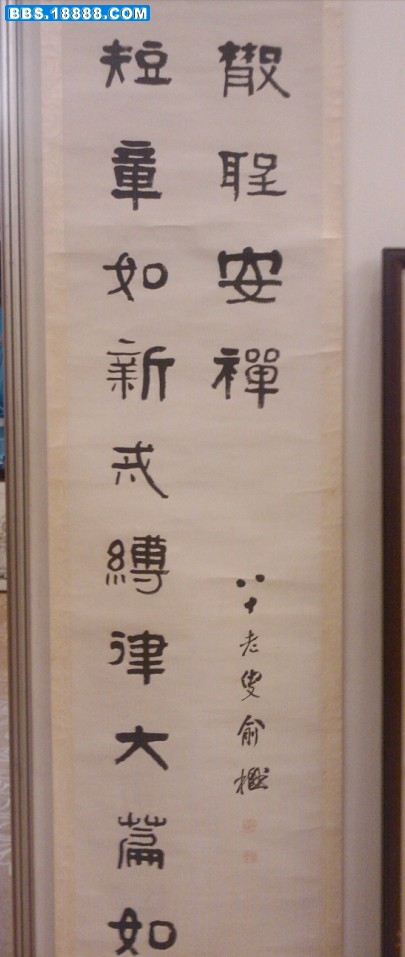 BBS.18888.COM
短章如新戒縛律大篇如
散聖安禪
八十老叟俞樾